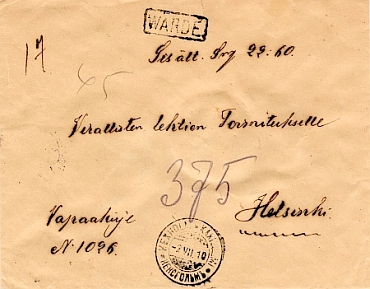 WARDE
17
Sisält. Smg 22:60.
45
Virallisten lehtien Toimitukselle
375
Vapaakirje
Helsinki.
N:1096.
-2.VII.10